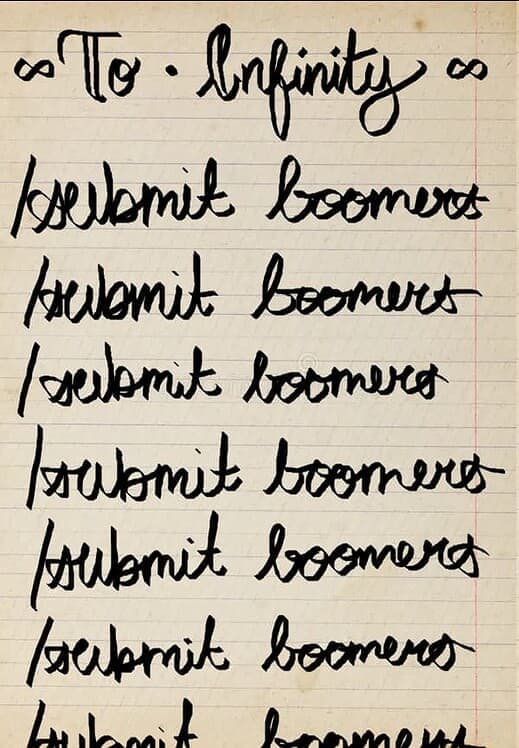 ∞ To • Infinity ∞
/submit boomers
/submit boomers
/submit boomers
/submit boomers
/submit boomers
/submit boomers
/submit boomers